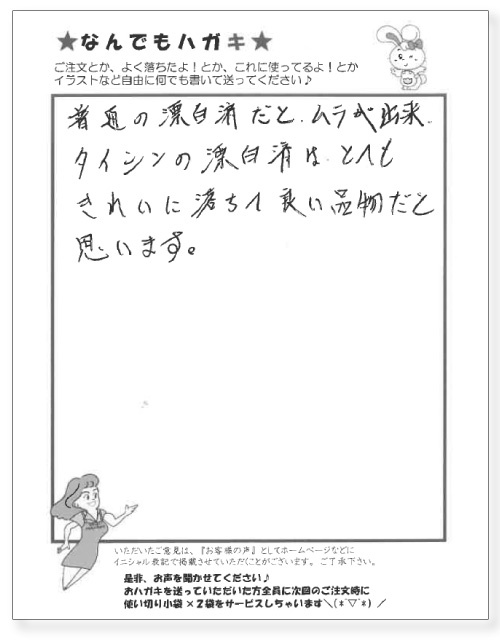 ★なんでもハガキ★
ご注文とか、よく落ちたよ！とか、これに使ってるよ！とか
イラストなど自由に何でも書いて送ってください♪
普通の漂白済だと、ムラが出来、
タイシンの漂白済は、とても
きれいに落ちて良い品物だと
思います。
いただいたご意見は、『お客様の声』としてホームページなどに
イニシャル表記で掲載させていただことがございます。ご了承下さい。
是非、お声を聞かせてください♪
おハガキを送っていただいた方全員に次回のご注文時に
使い切り小袋×2袋をサービスしちゃいます＼(*´▽`*)／